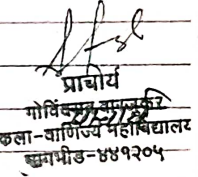 प्राचार्य
गोविंदराव वारजुकर
कला-वाणिज्य महाविद्यालय
नागभीड-४४१२०५